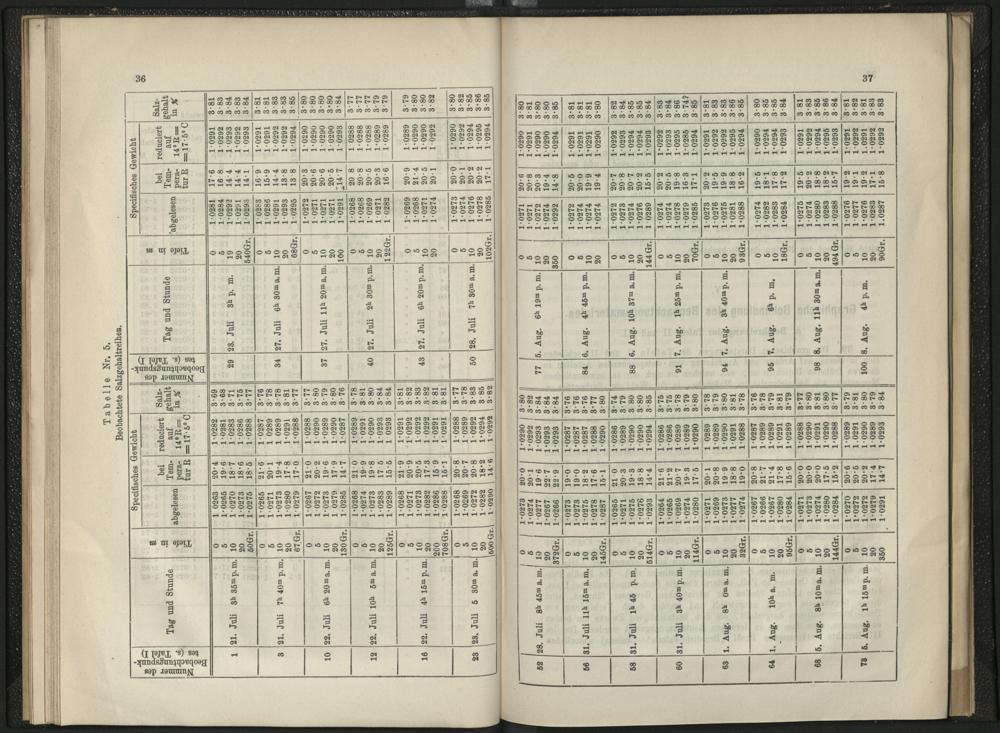 36
Tabelle Nr. 5.
Beobachtete Salzgehaltreihen.
Nummer des Beobachtungspunktes (s. Tafel I)
Tag und Stunde
Tiefe in m
Specifisches Gewicht
abgelesen
bei Temperatur R
reducirt auf 14° R = = 17·5° C
Salzgehalt in %
1 21. Juli 3h 35m p. m.
0 1·0263 20·4 1·0282 3·69
5 1·0265 19·6 1·0281 3·68
10 1·0270 18·7 1·0283 3·71
20 1·0273 18·6 1·0286 3·75
50Gr. 1·0275 18·5 1·0288 3·77
3 21. Juli 7h 40m p. m.
0 1·0265 21·6 1·0287 3·76
5 1·0271 20·1 1·0289 3·78
10 1·0273 19·4 1·0289 3·78
20 1·0280 17·8 1·0291 3·81
67Gr. 1·0279 17·0 1·0288 3·77
10 22. Juli 6h 20m a. m.
0 1·0267 21·0 1·0288 3·77
5 1·0272 20·2 1·0290 3·80
10 1·0273 19·6 1·0289 3·79
20 1·0279 17·9 1·0290 3·80
130Gr. 1·0285 14·7 1·0287 3·76
12 22. Juli 10h 5m a. m.
0 1·0268 21·0 1·0289 3·78
5 1·0274 19·9 1·0291 3·81
10 1·0273 19·8 1·0290 3·80
20 1·0283 17·5 1·0293 3·84
125Gr. 1·0289 15·5 1·0293 3·84
16 22. Juli 4h 15m p. m.
0 1·0268 21·9 1·0291 3·81
5 1·0271 20·9 1·0292 3·82
10 1·0273 20·5 1·0292 3·83
20 1·0282 17·3 1·0292 3·82
200 1·0286 15·9 1·0291 3·81
708Gr. 1·0288 15·7 1·0291 3·81
23 23. Juli 5 30m a. m.
0 1·0268 20·8 1·0288 3·77
5 1·0269 20·7 1·0289 3·78
10 1·0272 20·8 1·0292 3·83
20 1·0282 18·2 1·0294 3·85
600Gr. 1·0290 14·6 1·0292 3·82
Nummer des Beobachtungspunktes (s. Tafel I)
Tag und Stunde
Tiefe in m
Specifisches Gewicht
abgelesen
bei Temperatur R
reduciert auf 14° R = = 17·5° C
Salzgehalt in %
29 23. Juli 3h p. m.
0 1·0281 17·6 1·0291 3·81
5 1·0284 16·8 1·0292 3·83
19 1·0292 14·4 1·0293 3·84
20 1·0291 14·4 1·0292 3·83
540Gr. 1·0293 14·1 1·0293 3·84
34 27. Juli 6h 30m a. m.
0 1·0283 16·9 1·0291 3·81
5 1·0286 15·9 1·0291 3·81
10 1·0291 14·4 1·0292 3·83
20 1·0276 13·8 1·0292 3·83
68Gr. 1·0295 13·8 1·0294 3·85
37 27. Juli 11h 20m a. m.
0 1·0272 20·3 1·0290 3·80
5 1·0271 20·6 1·0290 3·80
10 1·0271 20·6 1·0290 3·80
20 1·0271 20·5 1·0290 3·80
100 1·0291 14·7 1·0293 3·84
40 27. Juli 2h 30m p. m.
0 1·0268 20·8 1·0288 3·77
5 1·0268 20·8 1·0288 3·77
10 1·0269 20·5 1·0288 3·77
20 1·0271 20·3 1·0289 3·79
122Gr. 1·0282 16·6 1·0289 3·79
43 27. Juli 6h 20m p. m.
0 1·0269 20·9 1·0289 3·79
5 1·0268 21·4 1·0290 3·80
10 1·0271 20·5 1·0290 3·80
20 1·0274 20·1 1·0292 3·82
50 28. Juli 7h 36m a. m.
0 1·0273 20·0 1·0290 3·80
5 1·0274 20·1 1·0292 3·82
10 1·0276 20·2 1·0294 3·85
20 1·0278 20·2 1·0295 3·86
102Gr. 1·0285 17·1 1·0294 3·85
37
52 28. Juli 8h 45m a. m.
0 1·0273 20·0 1·0290 3·80
5 1·0274 20·1 1·0292 3·82
10 1·0277 19·6 1·0293 3·84
20 1·0267 22·7 1·0293 3·84
372Gr. 1·0266 22·9 1·0293 3·84
56 31. Juli 11h 15m a. m.
0 1·0273 19·0 1·0287 3·76
5 1·0273 19·0 1·0287 3·76
10 1·0275 18·2 1·0287 3·76
20 1·0278 17·6 1·0288 3·77
145Gr. 1·0287 1·0290 3·80
58 31. Juli 1h 45 p. m.
0 1·0265 21·0 1·0286 3·74
5 1·0271 20·3 1·0289 3·79
10 1·0275 19·3 1·0290 3·80
20 1·0276 18·8 1·0290 3·80
514Gr. 1·0293 14·4 1·0294 3·85
60 31. Juli 3h 40m p. m.
0 1·0264 21·6 1·0286 3·75
5 1·0265 21·2 1·0286 3·75
10 1·0269 20·7 1·0289 3·78
20 1·0274 19·3 1·0289 3·79
114Gr. 1·0280 17·5 1·0290 3·80
63 1. Aug. 8h 0m a. m.
0 1·0271 20·1 1·0289 3·78
5 1·0269 20·8 1·0289 3·79
10 1·0273 19·9 1·0290 3·80
20 1·0277 18·9 1·0291 3·81
32Gr. 1·0274 19·0 1·0288 3·78
64 1. Aug. 10h a. m.
0 1·0267 20·8 1·0287 3·76
5 1·0266 21·7 1·0289 3·78
10 1·0267 21·4 1·0289 3·79
20 1·0280 17·8 1·0291 3·81
95Gr. 1·0284 15·6 1·0289 3·79
68 5. Aug. 8h 10m a. m.
0 1·0271 20·0 1·0288 3·77
5 1·0273 20·0 1·0290 3·80
10 1·0274 20·0 1·0291 3·81
20 1·0289 15·0 1·0290 3·80
144Gr. 1·0284 15·2 1·0288 3·77
73 5. Aug. 1h 15m p. m.
0 1·0270 20·6 1·0289 3·79
5 1·0271 20·5 1·0291 3·81
10 1·0272 20·2 1·0290 3·80
20 1·0279 17·4 1·0289 3·79
350 1·0291 14·7 1·0293 3·84
77 5. Aug. 6h 19m p. m.
0 1·0271 20·6 1·0290 3·80
5 1·0271 20·8 1·0291 3·81
10 1·0272 20·3 1·0290 3·80
20 1·0274 19·4 1·0290 3·80
350 1·0292 14·8 1·0294 3·85
84 6. Aug. 4h 45m p. m.
0 1·0272 20·5 1·0291 3·81
5 1·0274 20·0 1·0291 3·81
10 1·0274 19·9 1·0291 3·81
20 1·0274 19·4 1·0290 3·80
88 6. Aug. 10h 37m a. m.
0 1·0272 20·7 1·0292 3·82
5 1·0273 20·8 1·0293 3·84
10 1·0274 20·7 1·0294 3·85
20 1·0276 20·2 1·0294 3·85
144Gr. 1·0289 15·5 1·0293 3·84
91 7. Aug. 1h 25m p. m.
0 1·0274 20·2 1·0292 3·83
5 1·0274 20·5 1·0293 3·84
10 1·0278 19·8 1·0294 3·85
20 1·0278 16·3 1·0285 3·74?
70Gr. 1·0285 17·1 1·0294 3·85
94 7. Aug. 3h 40m p. m.
0 1·0273 20·2 1·0291 3·81
5 1·0276 19·5 1·0292 3·83
10 1·0275 19·9 1·0292 3·83
20 1·0281 18·8 1·0295 3·86
93Gr. 1·0288 16·2 1·0294 3·84
95 7. Aug. 6h p. m.
0 1·0274 19·5 1·0290 3·80
5 1·0282 18·1 1·0294 3·85
10 1·0283 17·8 1·0294 3·85
18Gr. 1·0284 17·2 1·0293 3·84
98 8. Aug. 11h 30m a. m.
0 1·0275 19·5 1·0291 3·81
5 1·0274 20·2 1·0292 3·83
10 1·0280 18·8 1·0294 3·85
20 1·0283 18·8 1·0295 3·86
494Gr. 1·0288 15·7 1·0293 3·84
100 8. Aug. 4h p. m.
0 1·0276 19·2 1·0291 3·81
5 1·0277 19·1 1·0292 3·82
10 1·0276 19·2 1·0291 3·81
20 1·0283 17·1 1·0292 3·83
90Gr. 1·0287 15·8 1·0292 3·83